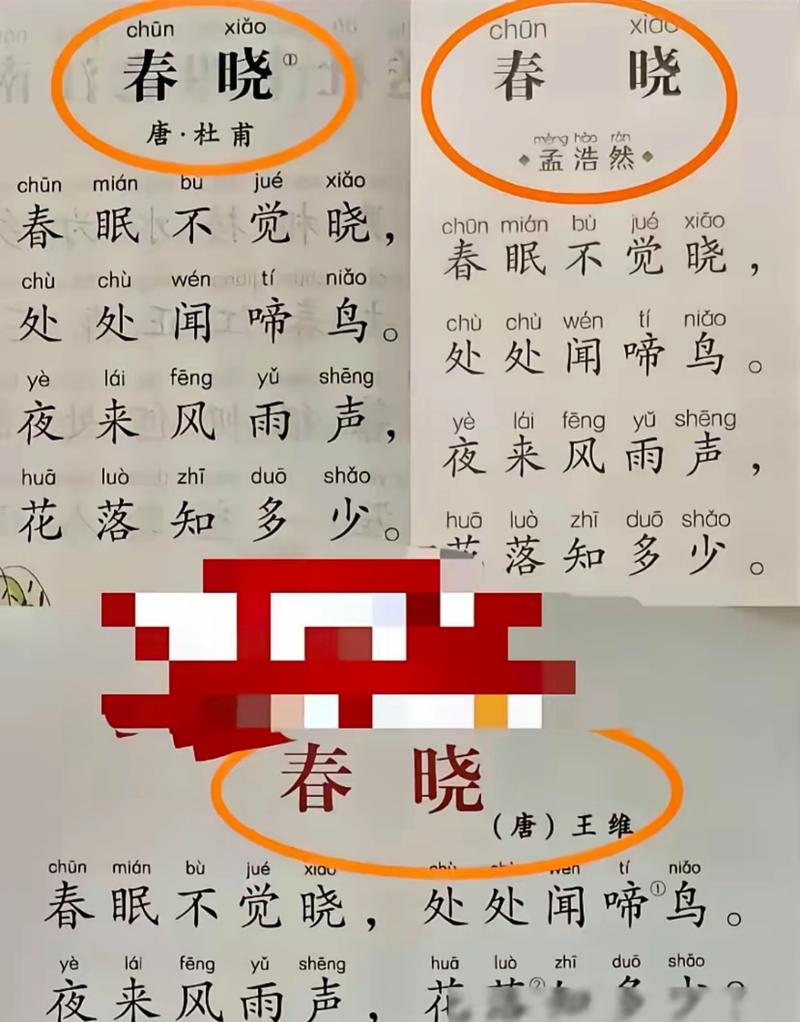 chūn xiǎo
春 晓①
唐·杜甫
chūn mián bù jué xiǎo
春眠不觉晓，
chù chù wén tí niǎo
处处闻啼鸟。
yè lái fēng yǔ shēng
夜来风雨声，
huā luò zhī duō shǎo
花落知多少。
chūn xiǎo
春 晓
mèng hào rán
◆孟浩然◆
chūn mián bù jué xiǎo
春眠不觉晓，
chù chù wén tí niǎo
处处闻啼鸟。
yè lái fēng yǔ shēng
夜来风雨声，
huā luò zhī duō shǎo
花落知多少。
春 晓
（唐）王维
chūn mián bù jué xiǎo chù chù wén tí niǎo
春眠不觉晓，处处闻啼①鸟。
yè lái fēng yǔ shēng huā luò zhī duō shǎo
夜来风雨声，花落②知多少？